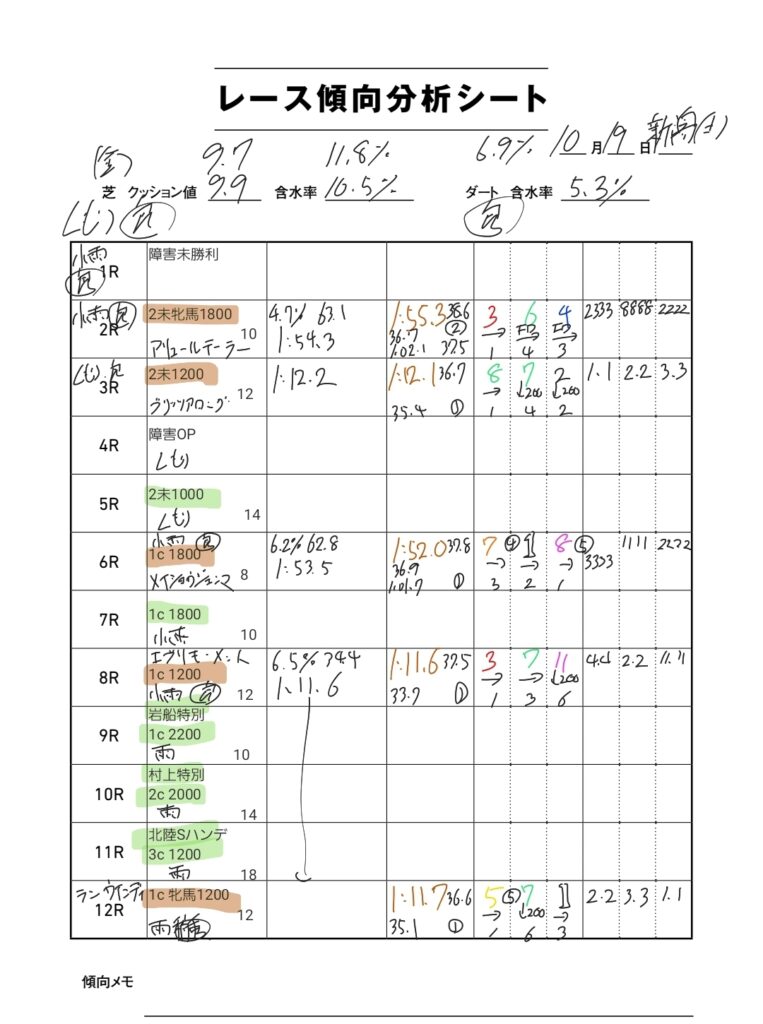 レース傾向分析シート
(金) 9.7 11.8% 6.9% 10月19日 新潟(土)
芝 クッション値 9.9 含水率 10.5% ダート 含水率 5.3%
くもり 良 良
小雨 良 1R 障害未勝利
小雨 良 2R 2未牝馬1800 10 アリュールテーラー
4.7% 63.1
1:54.3
1:55.3 38.6
36.7 ②
1:02.1 37.5
3 6 4
→ → →
1 4 3
2333 8888 2222
くもり 良 3R 2未1200 12
1:12.2
1:12.1 36.7
35.4 ①
8 7 2
→ ↓200 ↓200
1 4 2
1.1 2.2 3.3
4R 障害OP
くもり
5R 2未1000
くもり 14
小雨 良
6R 1c 1800 8
6.2% 62.8
1:53.5
1:52.0 37.8
36.9
1:01.7 ①
7 ④ 1 8 ⑤
→ → →
3 2 1
3303 1111 2222
7R 1c 1800
小雨 10
8R 1c 1200
小雨 12
6.5% 34.4
1:11.6
1:11.6 37.5
33.7 ①
3 7 11
→ → ↓200
1 3 6
4.4 2.2 11.11
岩船特別
9R 1c 2200
雨 10
村上特別
10R 2c 2000
雨 14
北陸Sハンデ
11R 3c 1200
雨 18
12R 1c 牝馬1200
雨 12
1:11.7 36.6
35.1 ①
5 ⑤ 7 11
→ ↓200 →
1 6 3
2.2 3.3 1.1
傾向メモ